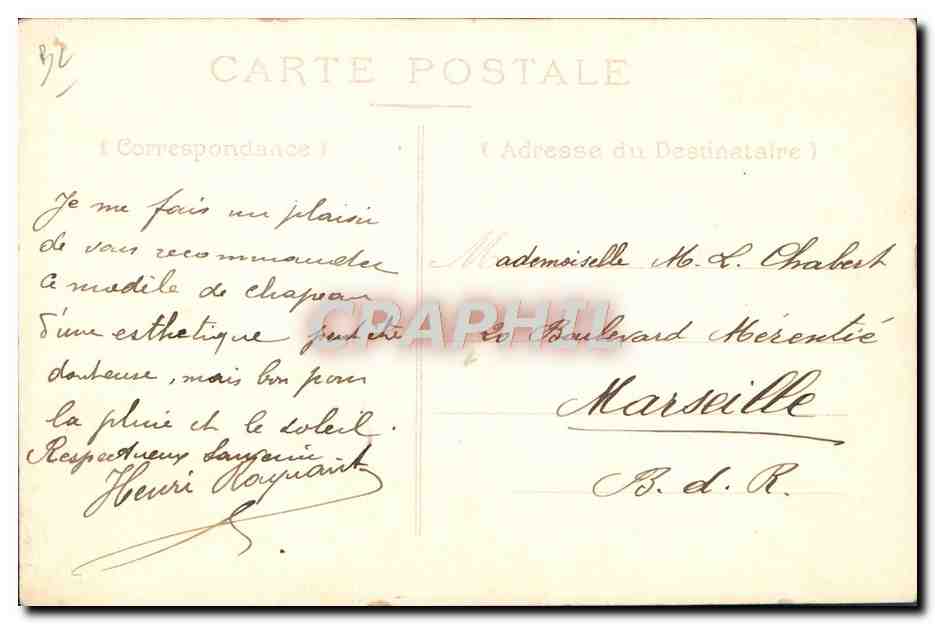 B2
CARTE POSTALE
( Correspondance )
( Adresse du Destinataire )
Je me fais un plaisir
de vous recommander
ce modèle de chapeau
d'une esthetique peut être
douteuse, mais bon pour
la pluie et le soleil.
Respectueux Souvenir
Henri
Mademoiselle M. L. Chabert
20 Boulevard Mérentié
Marseille
B. d. R.
CPAPHIL